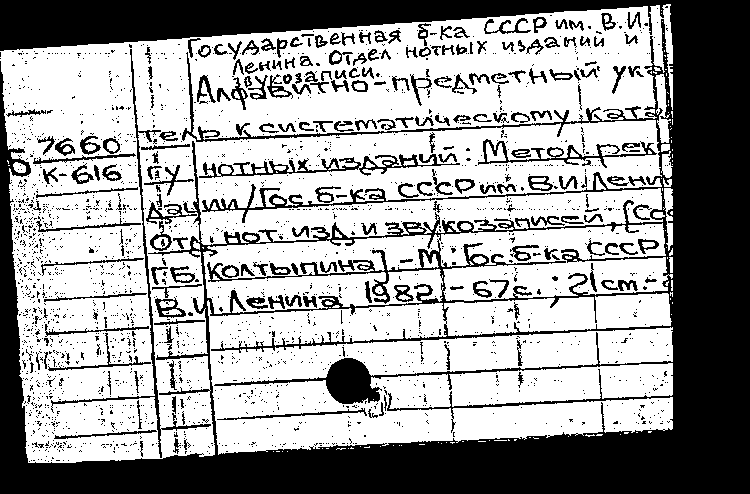 Государственная б-ка СССР им. В.И.
Ленина. Отдел нотных изданий и
звукозаписи.
Алфавитно-предметный ука
тель к систематическому ката
Б 7660
К-616
гу нотных изданий: Метод. рек
дации/Гос. б-ка СССР им. В.И. Лени
Отд. нот. изд. и звукозаписей; [Сос
Г.Б. Колтыпина]. - М.: Гос. б-ка СССР
В.И. Ленина, 1982. - 67с.; 21см. -